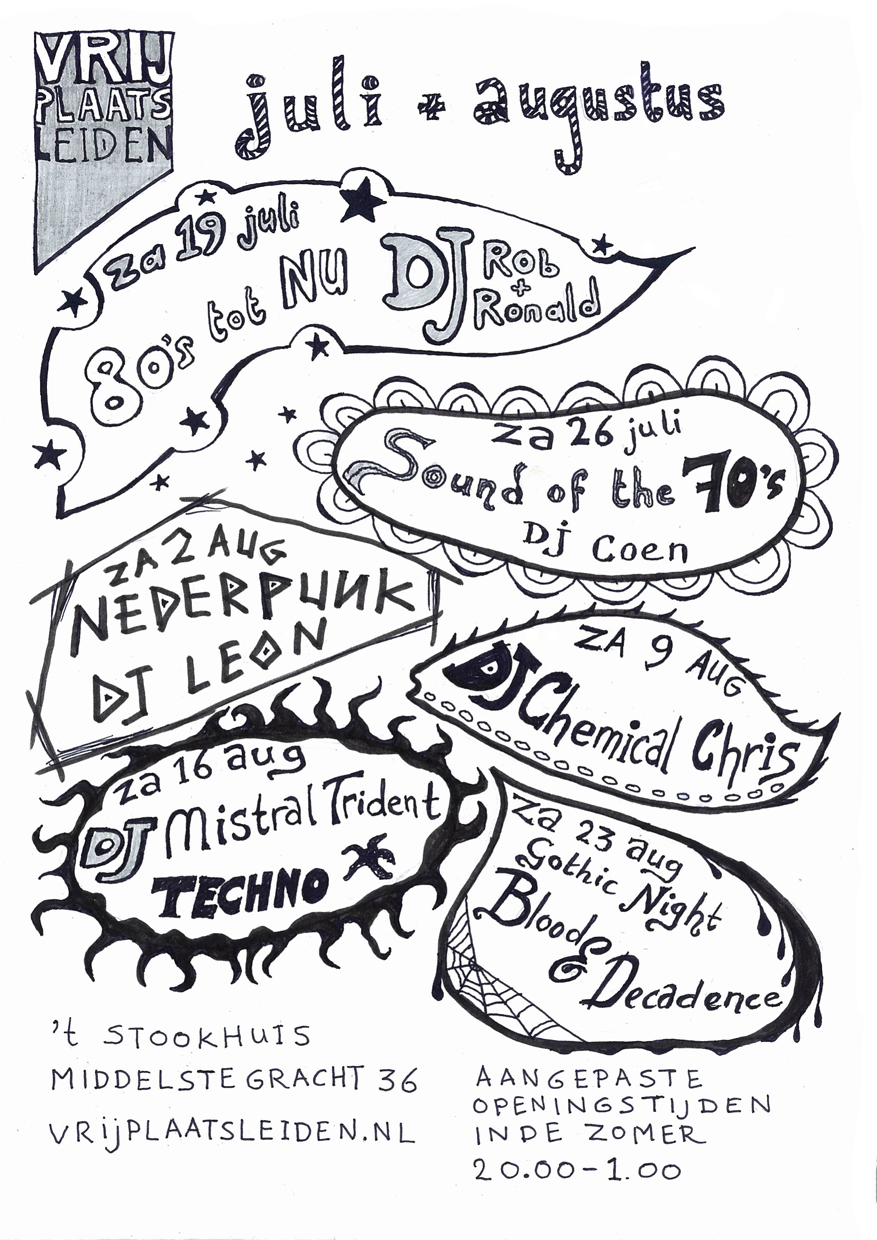 VRIJ
PLAATS
LEIDEN
juli + augustus
za 19 juli
80's tot NU
DJ Rob + Ronald
za 26 juli
Sound of the 70's
Dj Coen
ZA 2 AUG
NEDERPUNK
DJ LEON
ZA 9 AUG
DJ Chemical Chris
za 16 aug
DJ Mistral Trident
TECHNO
za 23 aug
Gothic Night
Blood
& Decadence
't STOOKHUIS
MIDDELSTE GRACHT 36
VRijPLAATSLEIDEN.NL
AANGEPASTE
OPENINGSTIJDEN
IN DE ZOMER
20.00-1.00